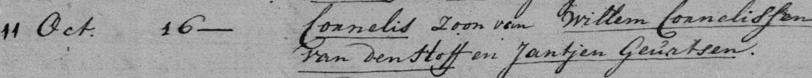 11 Oct. 16— Cornelis zoon van Willem Cornelissen
van den Hoff en Jantjen Geurtsen.